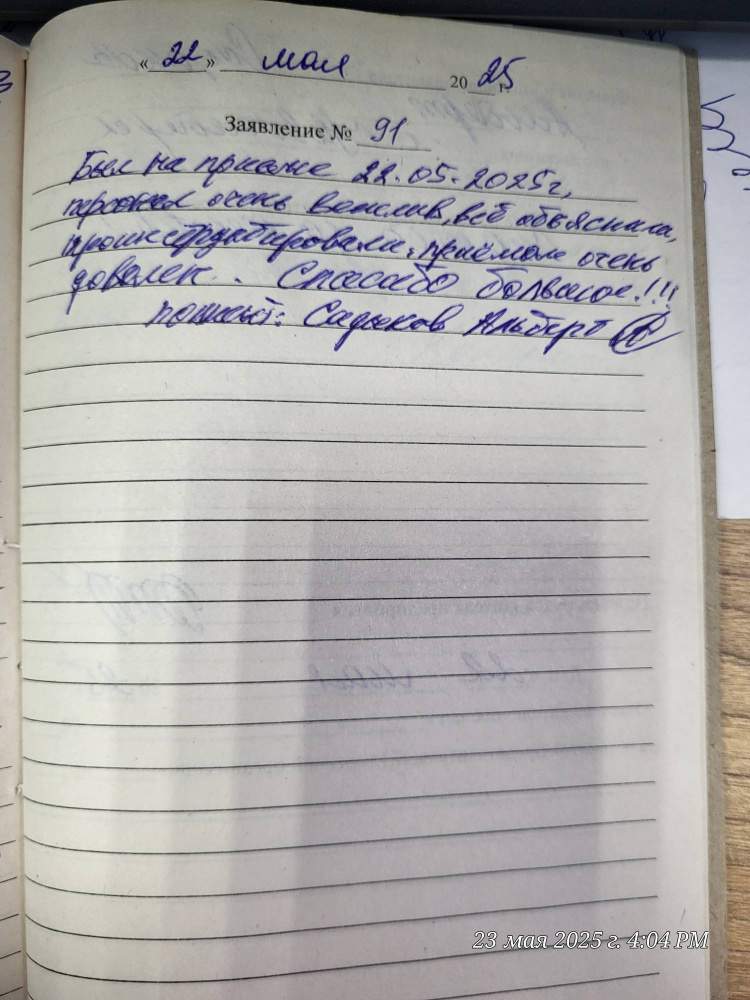 « 22 » мая 20 25 г.
Заявление № 91
Был на приеме 22.05.2025г,
персонал очень вежлив, всё объяснила,
проинструктировали, приёмом очень
доволен. Спасибо большое!!!
Садыков Альберт
23 мая 2025 г. 4:04 PM